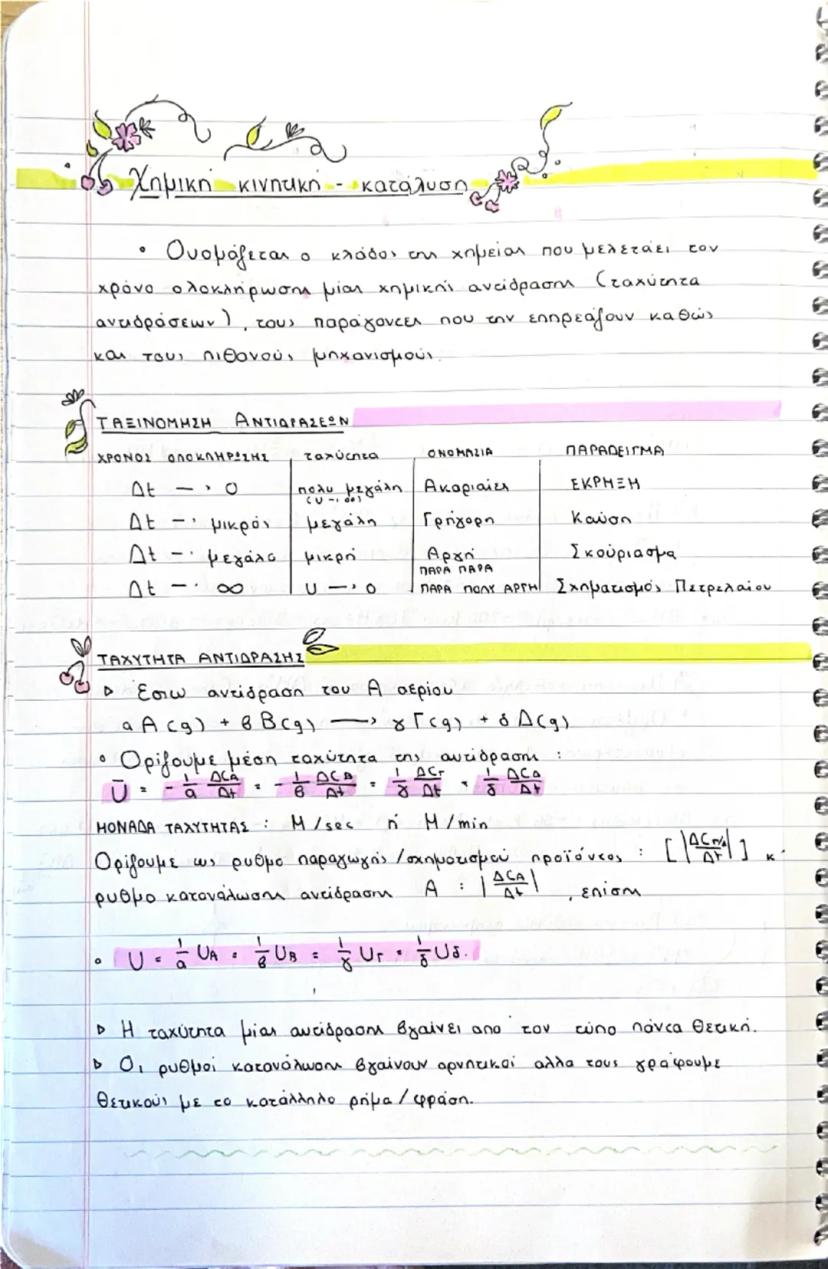 Χημική κινητική - κατάλυση
• Ονομάζεται ο κλάδος της χημείας που μελετάει τον
χρόνο ολοκλήρωσης μίας χημικής αντίδρασης (ταχύτητα
αντιδράσεων), τους παράγοντες που την επηρεάζουν καθώς
και τους πιθανούς μηχανισμούς.
ΤΑΞΙΝΟΜΗΣΗ ΑΝΤΙΔΡΑΣΕΩΝ
ΧΡΟΝΟΣ ΟΛΟΚΛΗΡΩΣΗΣ | ταχύτητα | ΟΝΟΜΑΣΙΑ | ΠΑΡΑΔΕΙΓΜΑ
Δt → 0 | πολυ μεγάλη (U → ∞) | Ακαριαίες | ΕΚΡΗΞΗ
Δt → μικρός | μεγάλη | Γρήγορη | Καύση
Δt → μεγάλο | μικρή | Αργή | Σκούριασμα
Δt → ∞ | U → 0 | ΠΑΡΑ ΠΑΡΑ ΠΑΡΑ ΠΟΛΥ ΑΡΓΗ | Σχηματισμός Πετρελαίου
ΤΑΧΥΤΗΤΑ ΑΝΤΙΔΡΑΣΗΣ
▷ Έστω αντίδραση του Α αερίου
αA(g) + βB(g) ⟶ γΓ(g) + δΔ(g)
• Ορίζουμε μέση ταχύτητα της αντίδρασης :
Ū = -1/α ΔCA/Δt = -1/β ΔCB/Δt = 1/γ ΔCΓ/Δt = 1/δ ΔCΔ/Δt
ΜΟΝΑΔΑ ΤΑΧΥΤΗΤΑΣ : M/sec ή M/min
Ορίζουμε ως ρυθμο παραγωγής/σχηματισμού προϊόντος : [|ΔC/Δt|] κ'
ρυθμο κατανάλωσης αντίδρασης A : |ΔCA/Δt| , επίσης
• U = 1/α UA = 1/β UB = 1/γ UΓ = 1/δ Uδ.
▷ Η ταχύτητα μίας αντίδρασης βγαίνει απο τον τύπο πάντα θετική.
▷ Οι ρυθμοί κατανάλωσης βγαίνουν αρνητικοί αλλα τους γράφουμε
θετικούς με το κατάλληλο ρήμα/φράση.